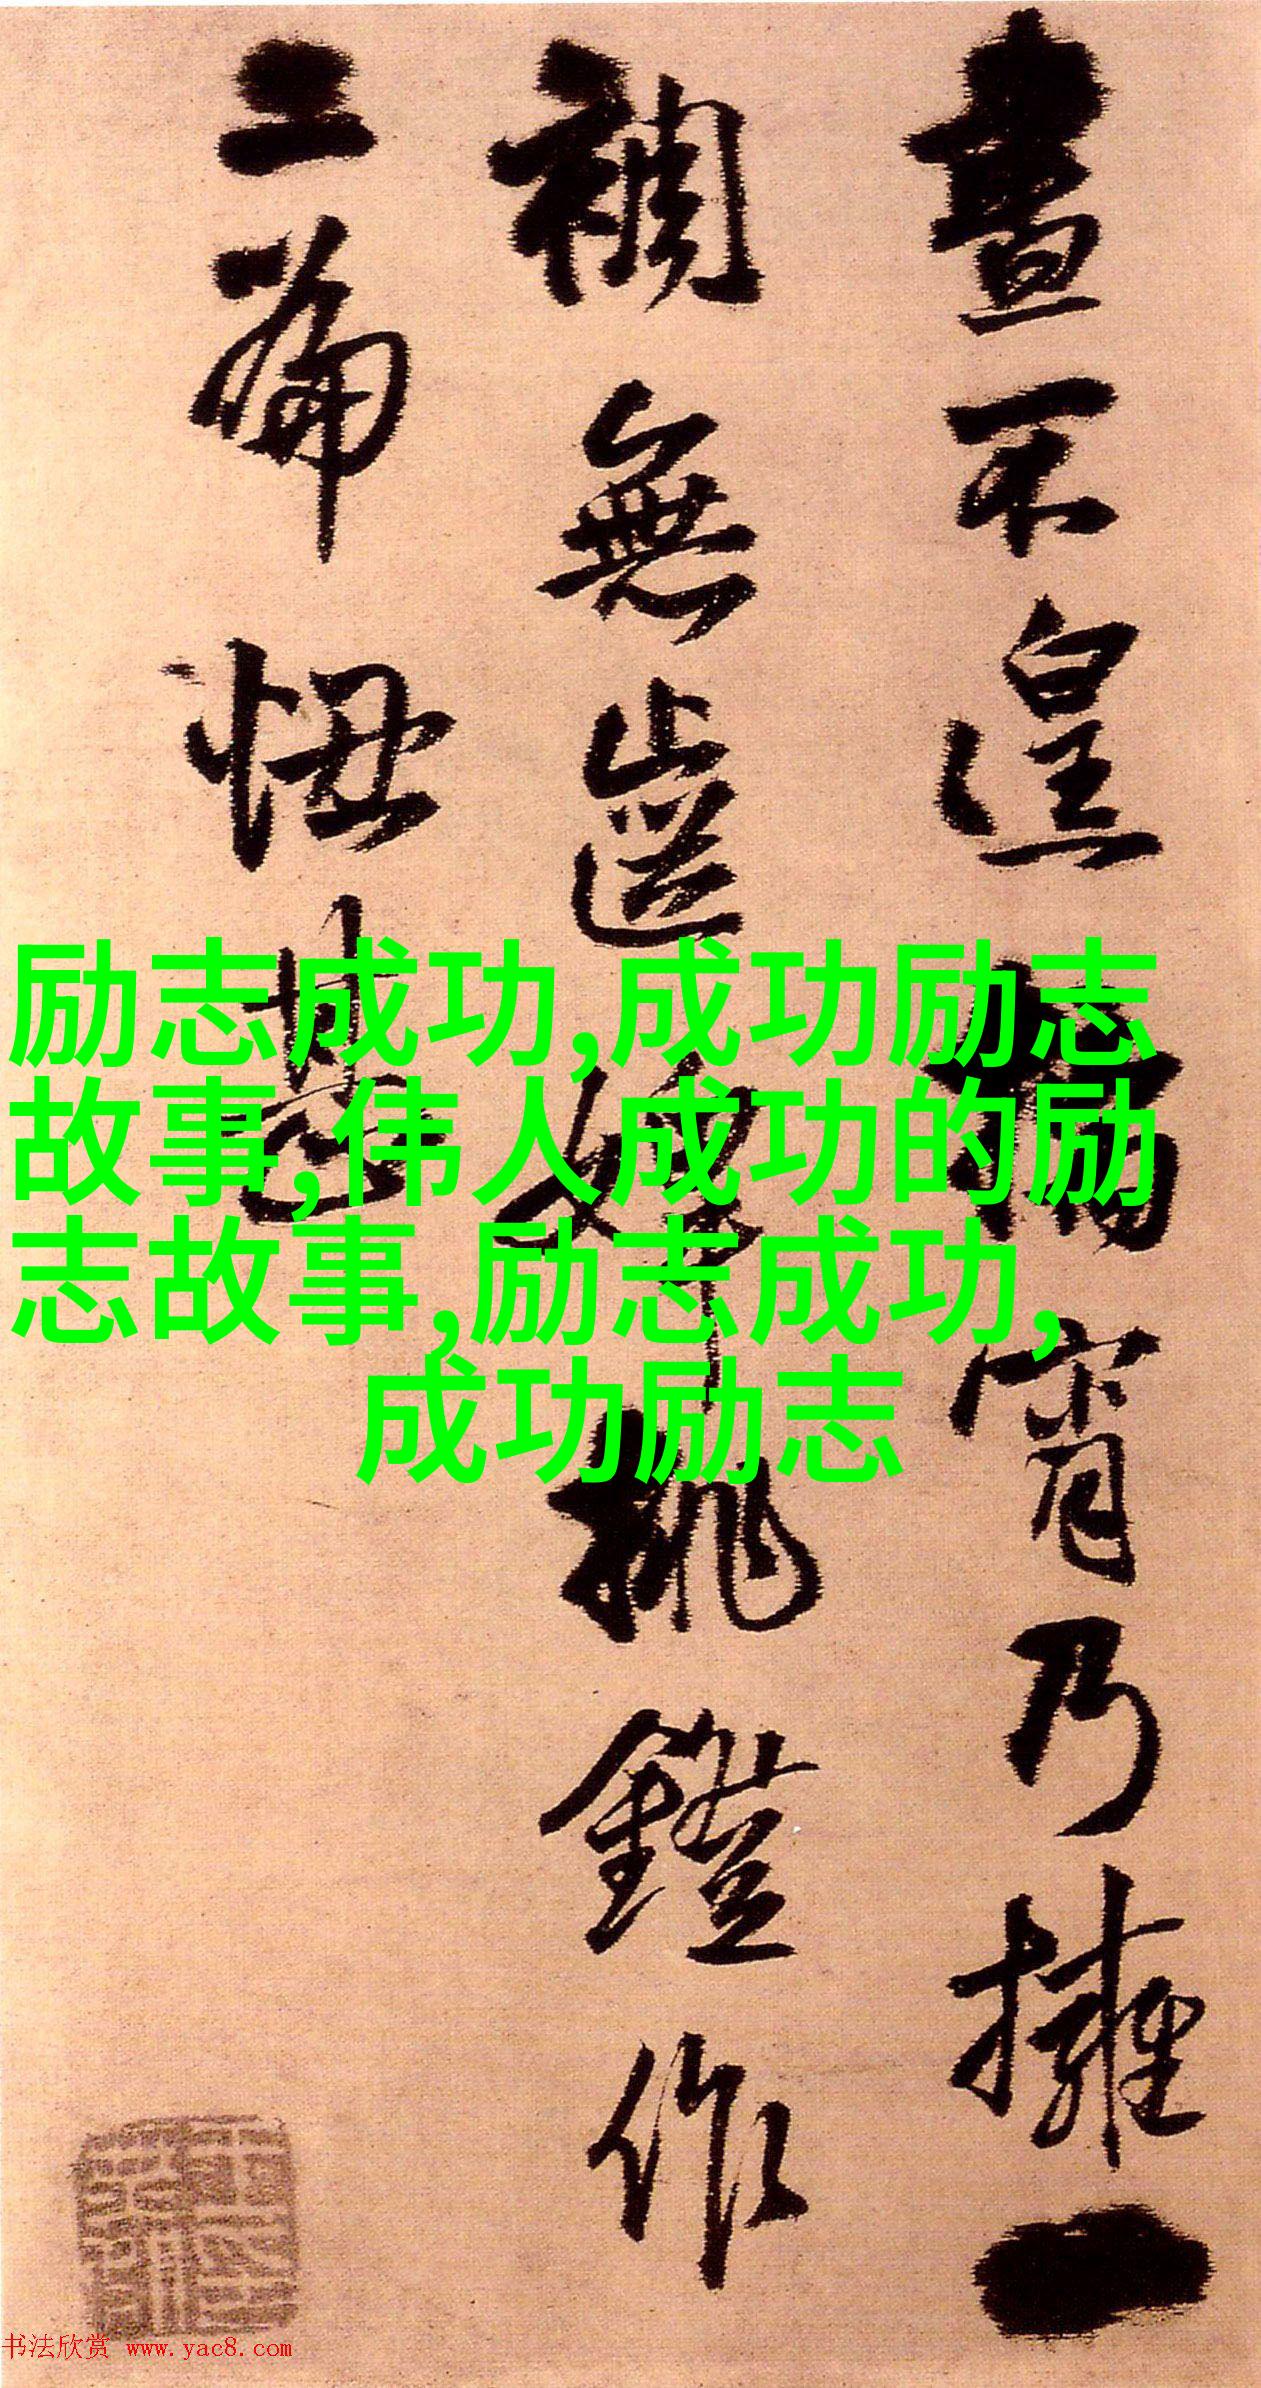 晝不遑
宵乃擁一
裯無
挑鐙作
二篇
励志成功,成功励志
故事,伟人成功的励
志故事,励志成功,
成功励志
书法欣赏 www.yac8.com